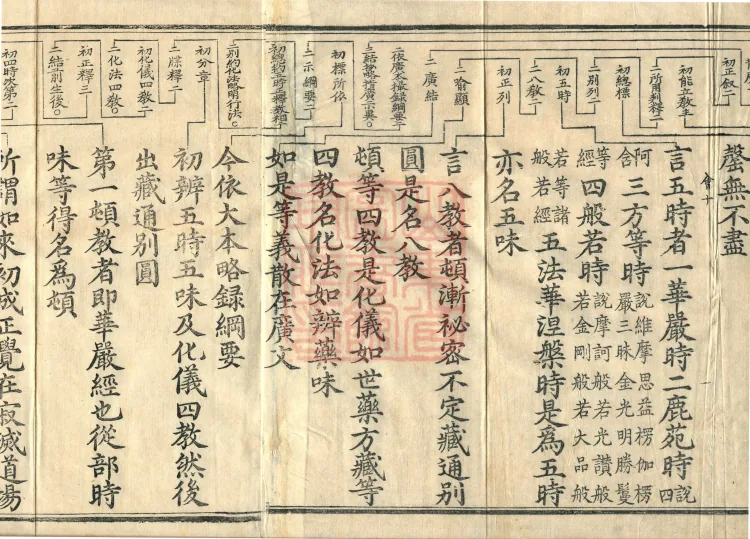 初正叙二
初能立教主
二所用判釋二
初總標
二別列二
初五時
二八教二
初正列
二喻顯
二廣結
二依廣本撮録綱要二
初標所依
二示綱要二
二別約化法略明行法。
初分章
二牒釋二
初化儀四教二
二化法四教。
初正釋三
二結前生後。
初四時次第二
罄無不盡
會十
言五時者一華嚴時二鹿苑時說四
阿含三方等時說維摩思益楞伽楞嚴三昧金光明勝鬘
等經四般若時說摩訶般若光讚般若金剛般若大品般
若等諸般若經五法華涅槃時是爲五時
亦名五味
言八教者頓漸祕密不定藏通別
圓是名八教
頓等四教是化儀如世藥方藏等
四教名化法如辨藥味
如是等義散在廣文
今依大本略録綱要
初辨五時五味及化儀四教然後
出藏通別圓
第一頓教者即華嚴經也從部時
味等得名為頓
所謂如來初成正覺在寂滅道場